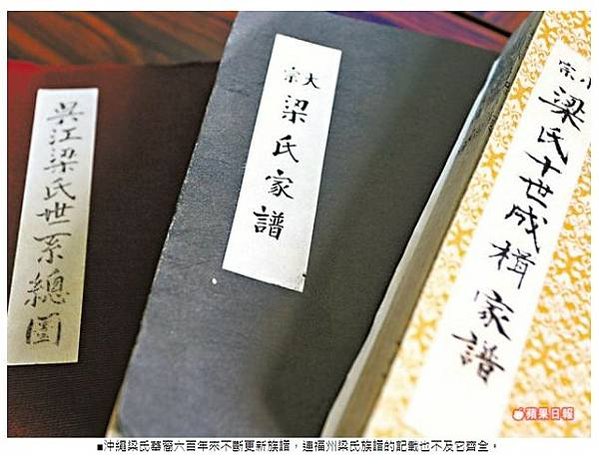 呉江梁氏世系總圖
大宗
梁氏家譜
小宗
梁氏十世成楫家譜
蘋果日報
■沖繩梁氏華裔六百年來不斷更新族譜，連福州梁氏族譜的記載也不及它齊全。